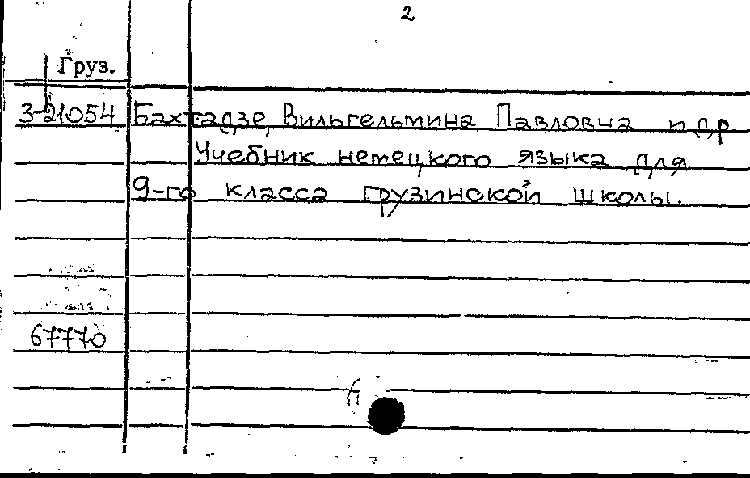 2
Груз.
3-21054 Бахтадзе, Вильгельмина Павловна и др
Учебник немецкого языка для
9-го класса грузинской школы.
67770